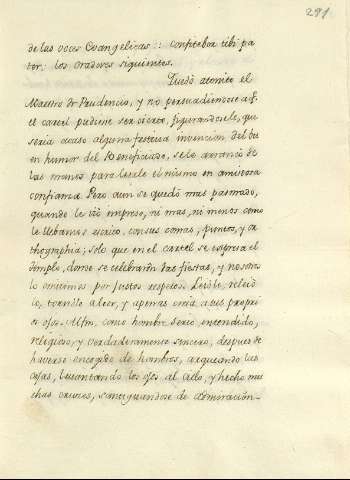 291.
de las voces Evangelicas :: Confitebor tibi pa
ter. los Oradores siguientes.
Quedó atonito el
Maestro Fr. Prudencio, y no persuadiendose a q.e
el cartel pudiese ser cierto, figurandosele, que
seria acaso alguna festiva invencion del bu
en humor del Beneficiado, se le arrancó de
las manos para leerle el mismo en amistosa
confianza. Pero aun se quedó mas pasmado,
quando le vió impreso, ni mas, ni menos como
le llebamos escrito, con sus comas, puntos, y or
thographia; solo que en el cartel se expresa el
templo, donde se celebraron las fiestas, y nosotros
lo omitimos por justos respetos. Leiole, releió
lo, tornólo a leer, y apenas creia a sus propri
os ojos. Alfin, como hombre serio, entendido,
religioso, y verdaderamente sincero, despues de
haverse encogido de hombros, arqueando las
cejas, levantando los ojos al Cielo, y hecho mu
chas cruces, santiguandose de admiracion-